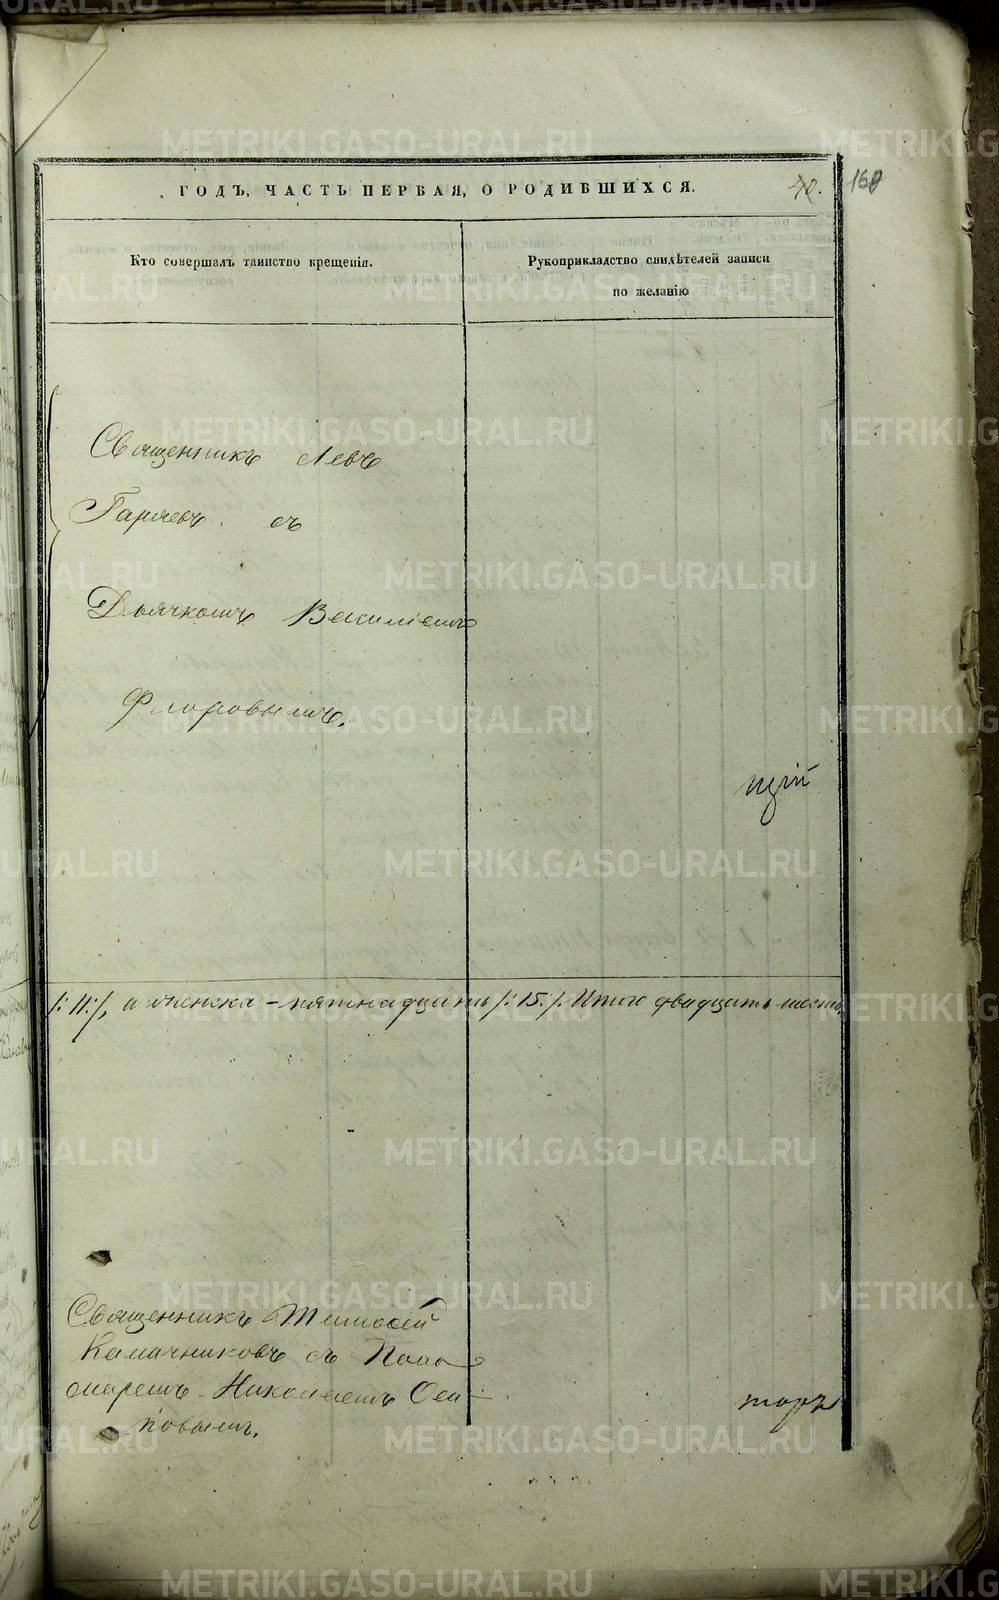 ГОДЪ, ЧАСТЬ ПЕРВАЯ, О РОДИВШИХСЯ.
Кто совершалъ таинство крещенія.
Рукоприкладство свидѣтелей записи
по желанію
Священникъ Левъ
Гаряевъ съ
Дьячкомъ Василіемъ
Флоровымъ.
/:11:/, а женска - пятнадцать /:15:/. Итого двадцать шесть.
Священникъ Тимоѳей
Калачниковъ съ Поно
маремъ Николаемъ Оси-
повымъ.
METRIKI.GASO-URAL.RU